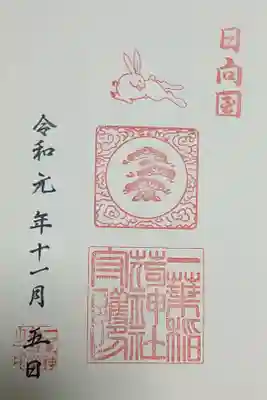 日向国
一葉稲
荷神社
守護
令和元年十一月五日